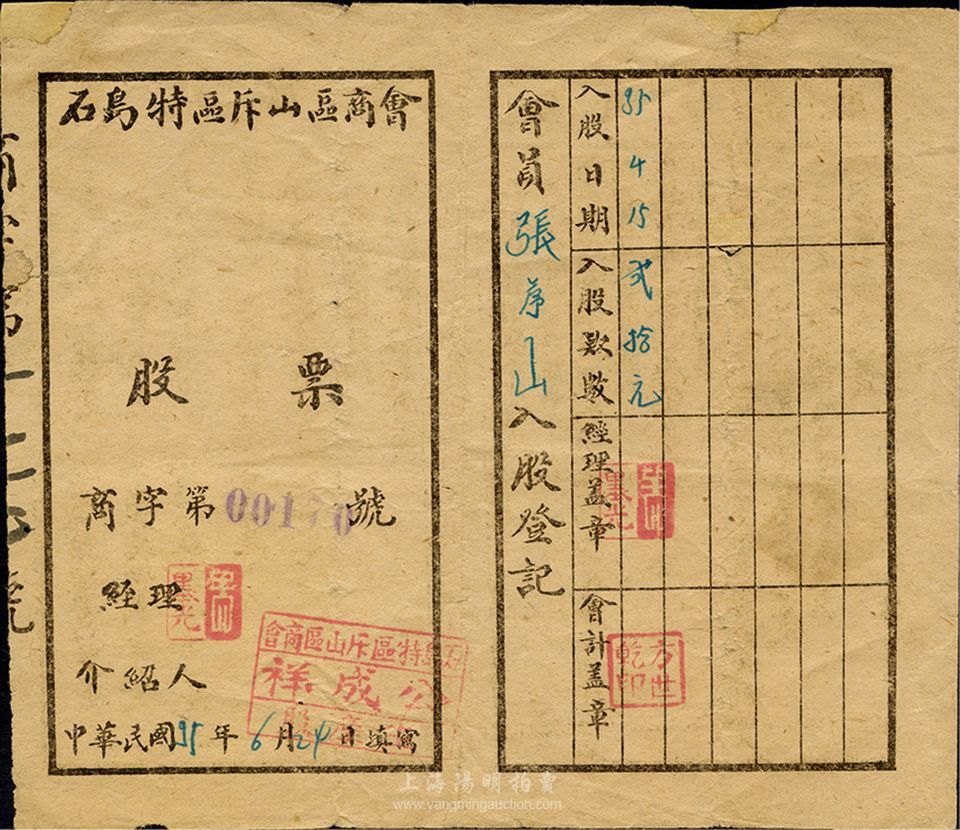 石島特區斥山區商會
股票
商字第001 0號
經理
介紹人
中華民國35年6月24日填寫
石島特區斥山區商會
公成祥
會員張 山入股登記
入股日期 35 4 15
入股款數 貳拾元
經理蓋章
會計蓋章
方世乾印
上海陽明拍賣
www.yangmingauction.com